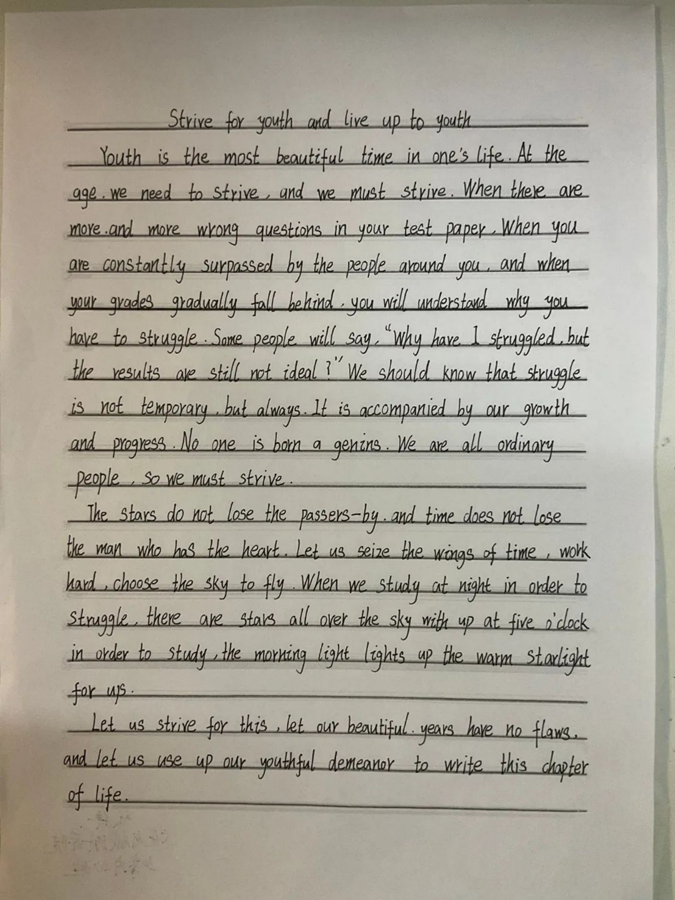 Strive for youth and live up to youth
Youth is the most beautiful time in one's life. At the
age, we need to strive, and we must strive. When there are
more and more wrong questions in your test paper, When you
are constantly surpassed by the people around you, and when
your grades gradually fall behind, you will understand why you
have to struggle. Some people will say, "Why have I struggled, but
the results are still not ideal?" We should know that struggle
is not temporary, but always. It is accompanied by our growth
and progress. No one is born a genins. We are all ordinary
people, so we must strive.
The stars do not lose the passers-by, and time does not lose
the man who has the heart. Let us seize the wings of time, work
hard, choose the sky to fly. When we study at night in order to
struggle, there are stars all over the sky with up at five o'clock
in order to study, the morning light lights up the warm starlight
for us.
Let us strive for this, let our beautiful years have no flaws,
and let us use up our youthful demeanor to write this chapter
of life.